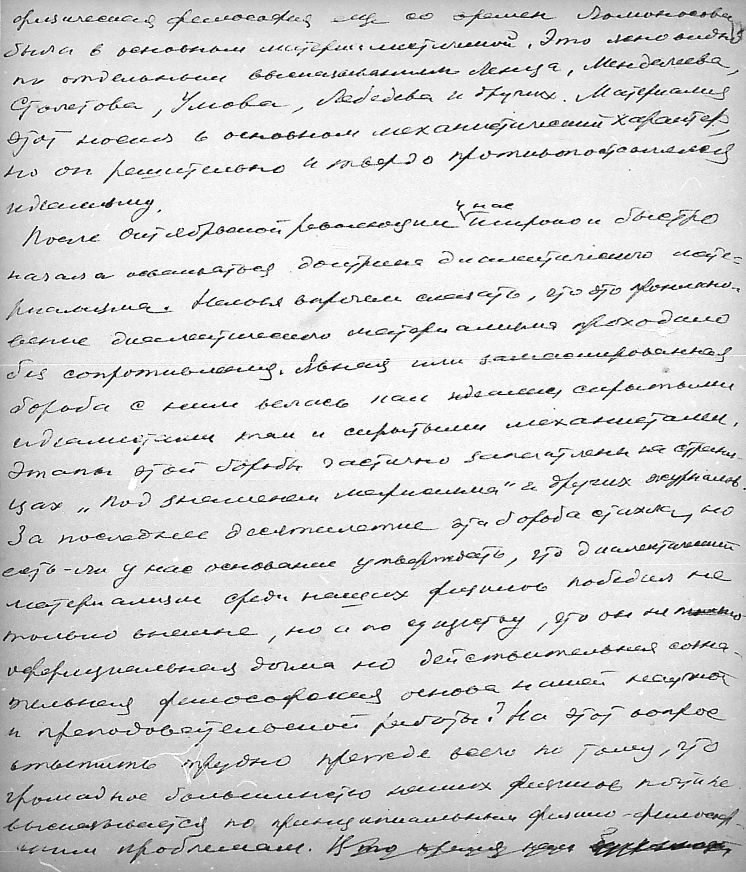 физическая философия еще со времен Ломоносова
была в основном материалистичной. Это ясно видно
по отдельным высказываниям Ленца, Менделеева,
Столетова, Умова, Лебедева и других. Материализм
этот носил в основном механистический характер,
но он решительно и твердо противопоставлялся
идеализму.
После Октябрьской революции у нас широко и быстро
начала осваиваться доктрина диалектического мате-
риализма. Нельзя впрочем сказать, что это проникно-
вение диалектического материализма проходило
без сопротивления. Явная или замаскированная
борьба с ним велась как идеалис скрытыми
идеалистами так и скрытыми механистами.
Этапы этой борьбы частично запечатлены на страни-
цах „Под знаменем марксизма" и других журналов.
За последнее десятилетие эта борьба стихла, но
есть-ли у нас основание утверждать, что диалектический
материализм среди наших физиков победил не
только внешне, но и по существу, что он не только
официальная догма но действительная созна-
тельная философская основа нашей научной
и преподавательской работы? На этот вопрос
ответить трудно прежде всего по тому, что
громадное большинство наших физиков почти не
высказывается по принципиальным физико-философ-
ским проблемам. В то время как